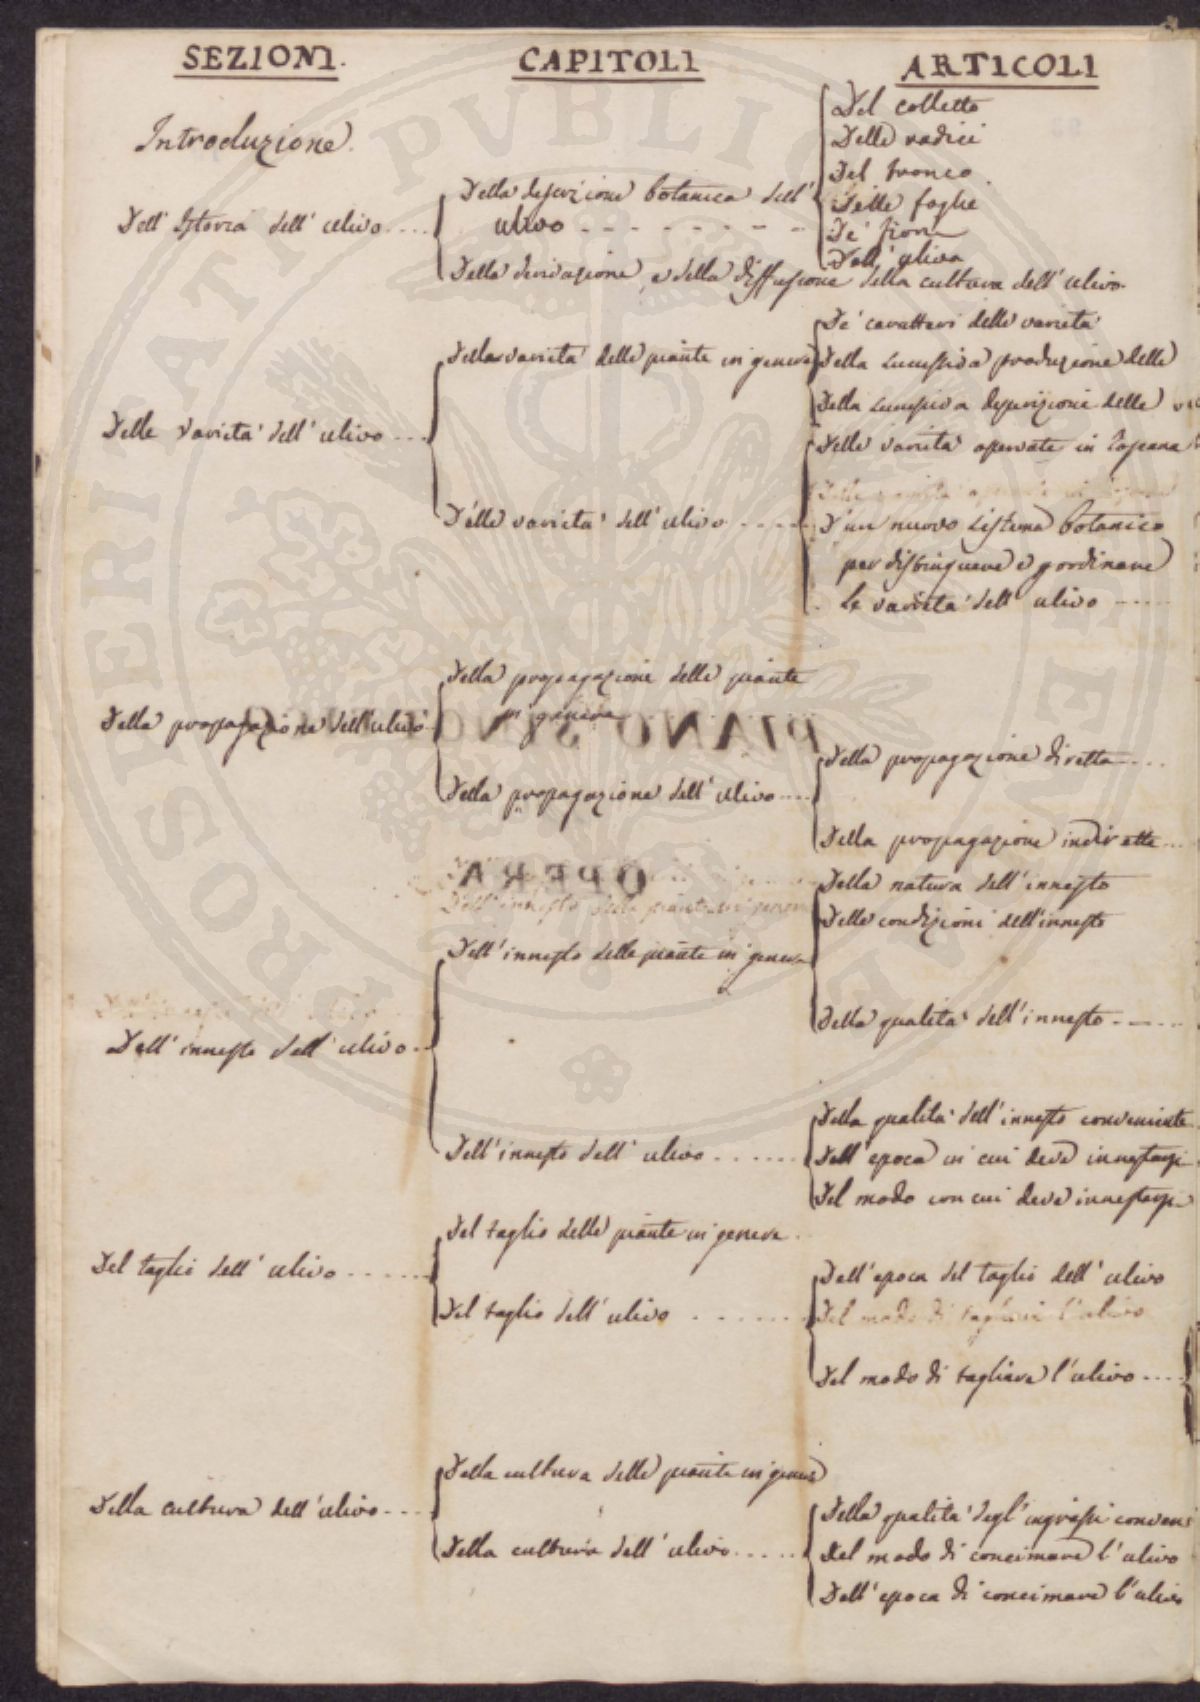 SEZIONI.
CAPITOLI
ARTICOLI
Introduzione.
Dell' Istoria dell' ulivo....
Della descrizione botanica dell'
ulivo - - - - - - - -
Del colletto
Delle radici
Del tronco.
Delle foglie
De' fiori
Dell' uliva
Della derivazione, e della diffusione della cultura dell' ulivo.
Delle varietà dell' ulivo...
Delle varietà delle piante in genere
De' caratteri delle varietà
Della successiva produzione delle
Della successiva desperizione delle
Delle varietà dell' ulivo ....
Delle varietà osservate in Toscana
D'un nuovo sistema botanico
per distinguere e coordinare
le varietà dell' ulivo .....
Della propagazione dell' ulivo.
Della propagazione delle piante
in genere
PIANO
Della propagazione dell' ulivo....
Della propagazione diretta....
Della propagazione indiretta...
OPERA
Dell'innesto delle piante in genere
Dell' innesto dell' ulivo..
Dell' innesto delle piante in genere
Della natura dell' innesto
Delle condizioni dell' innesto
Della qualità dell' innesto.....
Dell' innesto dell' ulivo ......
Della qualità dell' innesto conveniente
Dell' epoca in cui deve innestarsi
Del modo con cui deve innestarsi
Del taglio dell' ulivo ......
Del taglio delle piante in genere.
Del taglio dell' ulivo ......
Dell' epoca del taglio dell' ulivo
Del modo di tagliare l'ulivo
Del modo di tagliare l'ulivo ....
Della cultura dell' ulivo...
Della cultura delle piante in genere
Della cultura dell' ulivo.....
Della qualità degl' ingrassi
Del modo di concimare l' ulivo
Dell' epoca di concimare l' ulivo
PROSPERITATI PVBLICAE